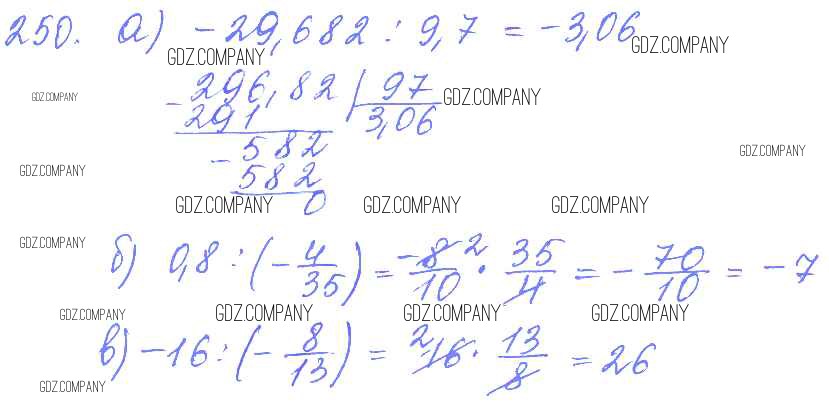 250. а) -29,682 : 9,7 = -3,06
GDZ.COMPANY GDZ.COMPANY
- 296,82 | 97
GDZ.COMPANY GDZ.COMPANY
291 3,06
- 582
GDZ.COMPANY GDZ.COMPANY
582
0
GDZ.COMPANY GDZ.COMPANY GDZ.COMPANY
GDZ.COMPANY
б) 0,8 : (- 4/35) = -8 2/10 · 35/4 = - 70/10 = -7
GDZ.COMPANY GDZ.COMPANY GDZ.COMPANY GDZ.COMPANY
в) -16 : (- 8/13) = 2 16 · 13/8 = 26
GDZ.COMPANY